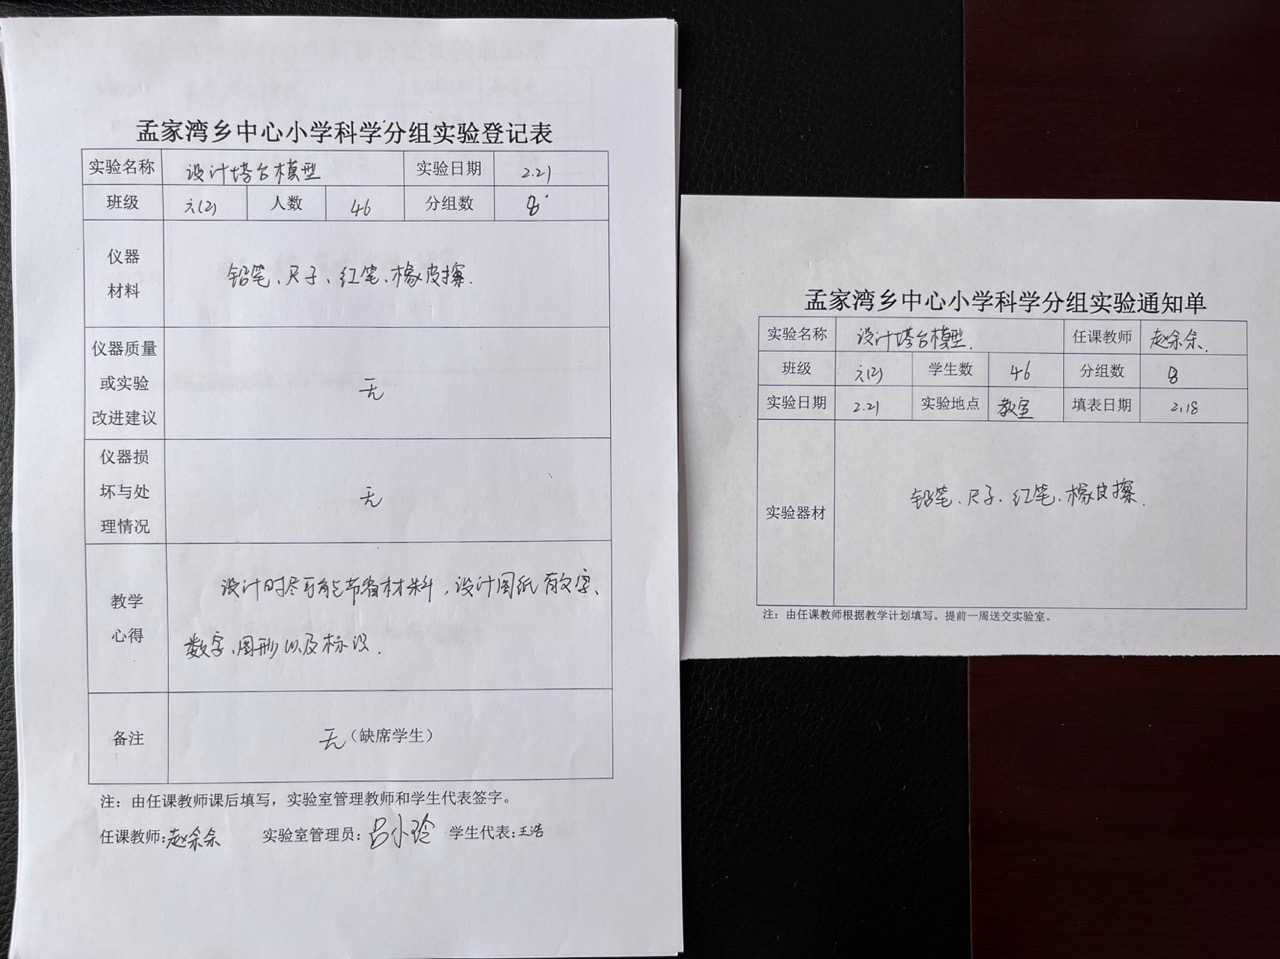 孟家湾乡中心小学科学分组实验登记表
实验名称 设计塔台模型 实验日期 2.21
班级 六(2) 人数 46 分组数 8
仪器
材料
铅笔、尺子、红笔、橡皮擦.
仪器质量
或实验
改进建议
无
仪器损
坏与处
理情况
无
教学
心得
设计时尽可能节省材料，设计图纸有文字、
数字、图形以及标识.
备注 无(缺席学生)
注：由任课教师课后填写，实验室管理教师和学生代表签字。
任课教师:赵余余 实验室管理员：吕小玲 学生代表:王浩
孟家湾乡中心小学科学分组实验通知单
实验名称 设计塔台模型. 任课教师 赵余余.
班级 六(2) 学生数 46 分组数 8
实验日期 2.21 实验地点 教室 填表日期 2.18
实验器材 铅笔、尺子、红笔、橡皮擦.
注：由任课教师根据教学计划填写。提前一周送交实验室。